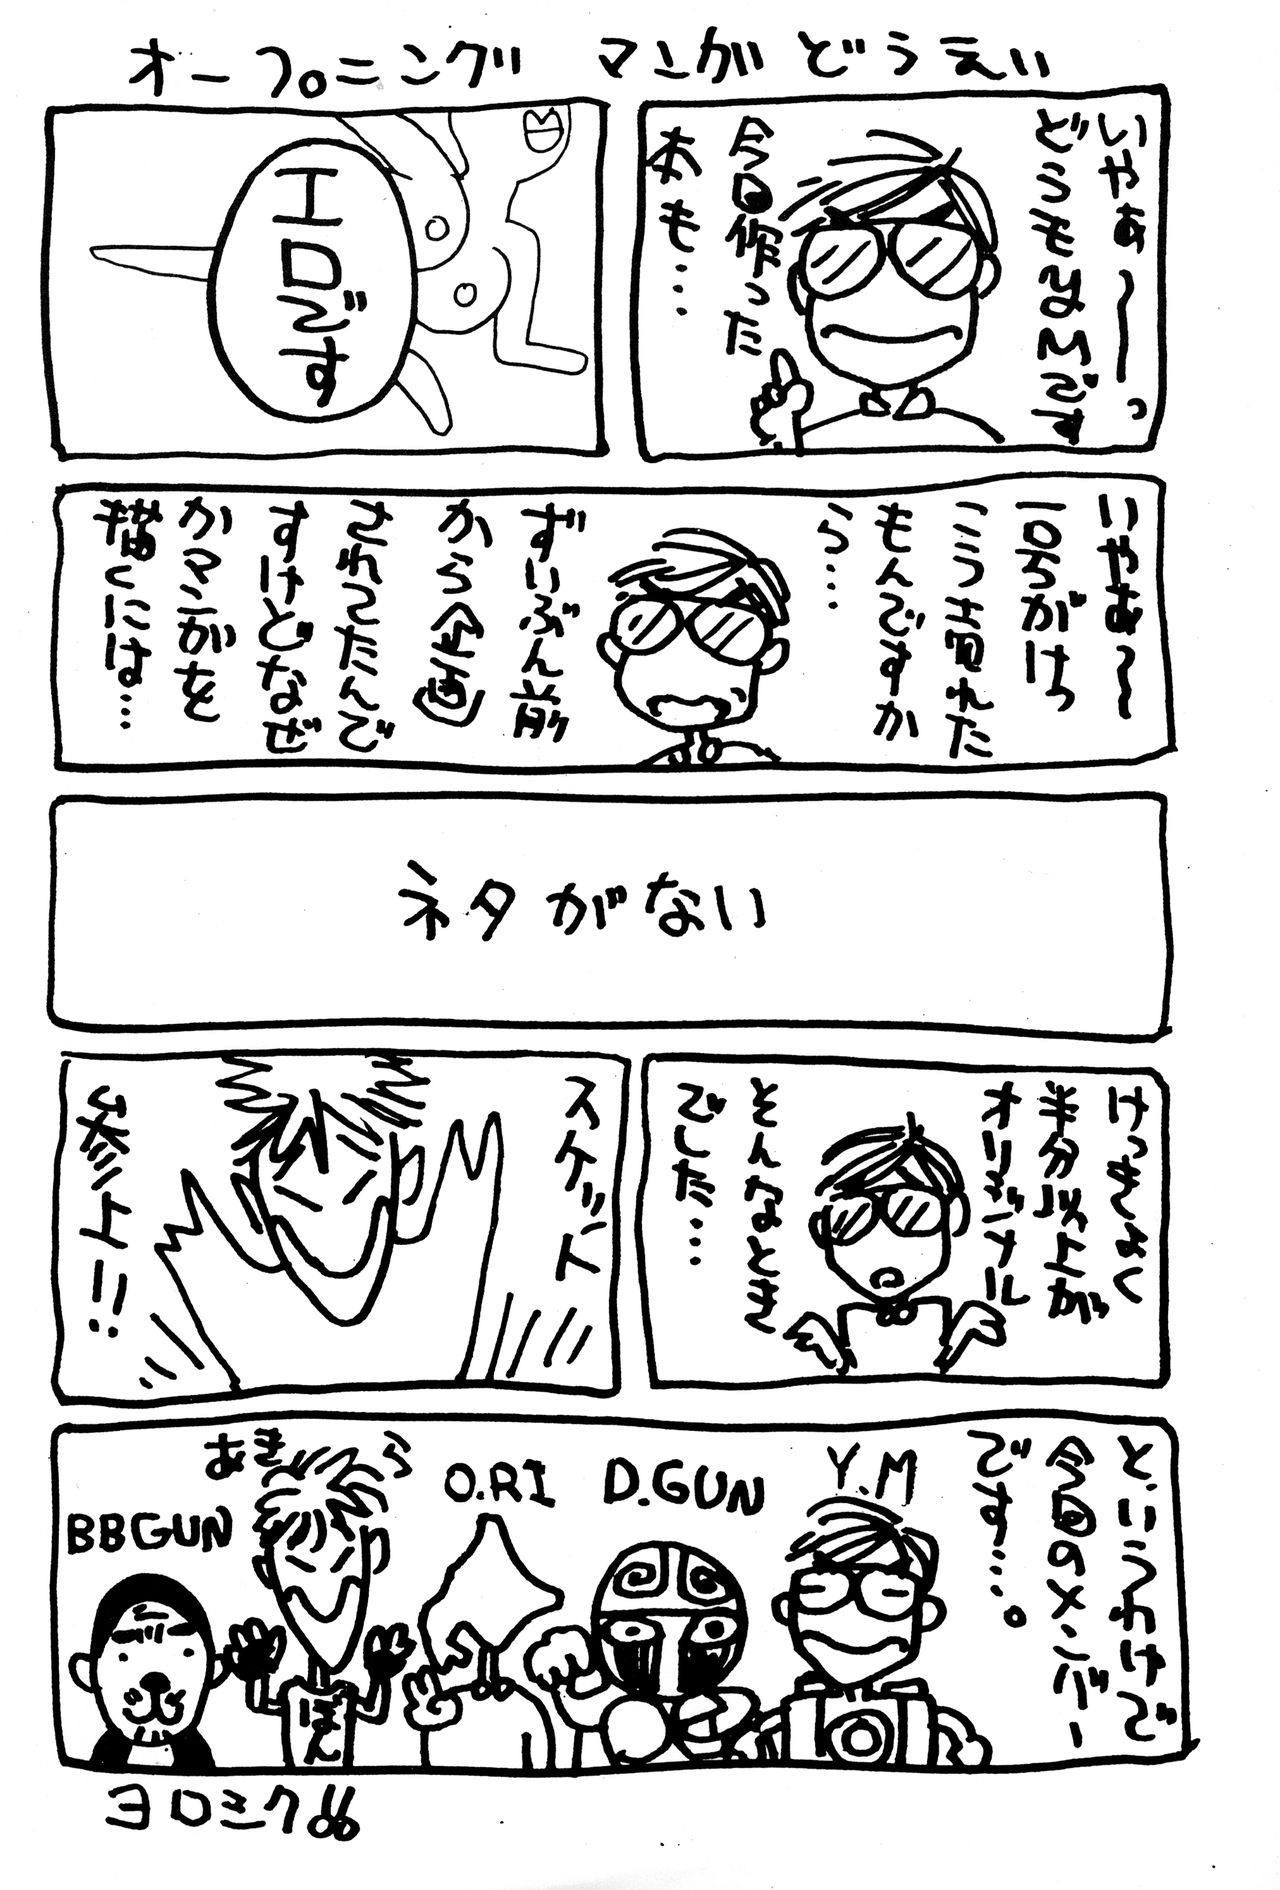 オープニング マンが どうえい
いやぁ〜〜っ
どうもYMです
今回作った
本も…
エロです
いやあ〜〜
一号がけっ
こう売れた
もんですか
ら…
ずいぶん前
から企画
されてたんで
すけどなぜ
かマンがを
描くには…
ネタがない
けっきょく
半分以上が
オリジナル
そんなとき
でした…
スケット
参上!!
と、いうわけで
今回のメンバー
です…。
Y.M
D.GUN
O.RI
あきら
BBGUN
ぼん
ヨロシク!!